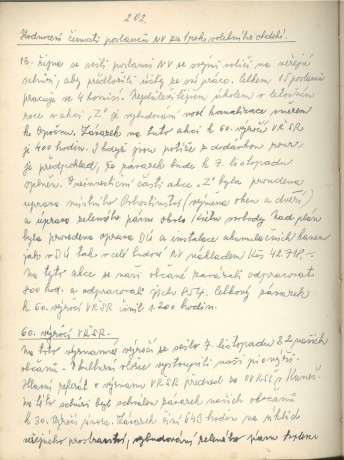 202.
Hodnocení činnosti poslanců NV za 1. rok volebního období.
13. října se sešli poslanci NV se svými voliči na veřejné
schůzi, aby předložili účty ze své práce. Celkem 15 poslanců
pracuje ve 4 komisí. Nejdůležitějším úkolem v letošním
roce v akci „Z" je vybudování nové kanalizace směrem
k Opočnu. Závazek na tuto akci k 60. výročí VŘSR
je 400 hodin. I když jsou potíže z dodávkou rour,
je předpoklad, že závazek bude k 7. listopadu
splněn. V neinvestiční části akce „Z" byla provedena
úprava místního Pohostinství (výměna oken a dveří)
a úprava zeleného pásu okolo lípy svobody. Nad plán
byla provedena oprava DÚ a instalace akumulačních kamen
jak v DÚ tak v celé budově NV nákladem Kčs 42.718.-
Na tyto akce se naši občané zavázali odpracovat
800 hod. a odpracovali jich 854. Celkový závazek
k 60. výročí VŘSR činil 1.200 hodin.
60. výročí VŘSR.
Na toto významné výročí se sešlo 7. listopadu 82 našich
občanů. V kulturní vložce vystoupili naši pionýři.
Hlavní referát o významu VŘSR přednesl za OV KSČ s.
Na této schůzi byl schválen závazek našich občanů
k 30. výročí února. Závazek činí 648 hodin na úklid
veřejného prostranství, vybudování zeleného pásu